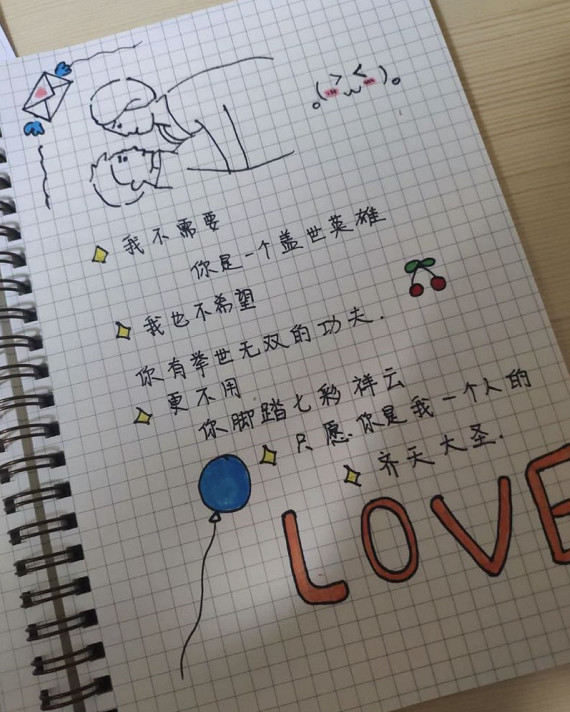 我不需要
你是一个盖世英雄
我也不希望
你有举世无双的功夫.
更不用
你脚踏七彩祥云
只愿你是我一个人的
齐天大圣.
LOVE